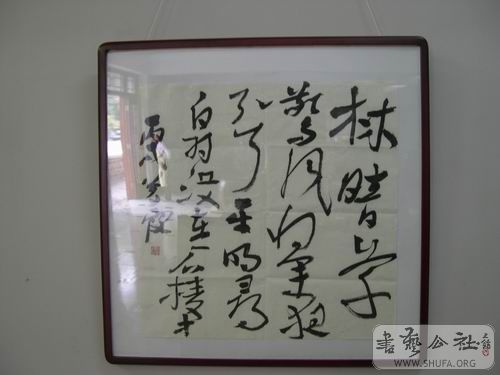 林暗草
惊风将军夜
引弓平明寻
白羽没在石棱中
書藝公社
WWW.SHUFA.ORG